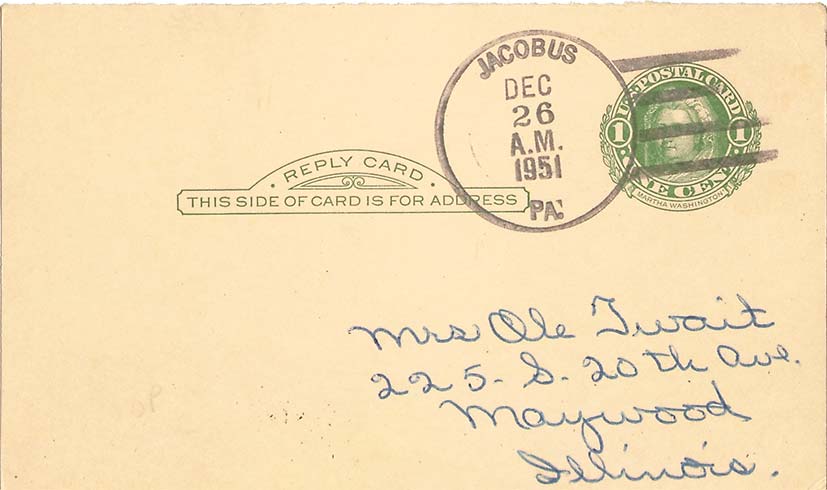 JACOBUS
DEC
26
A.M.
1951
PA.
U.S. POSTAL CARD
1 1
ONE CENT
MARTHA WASHINGTON
REPLY CARD
THIS SIDE OF CARD IS FOR ADDRESS
Mrs Ole Twait
225 - S. 20th Ave.
Maywood
Illinois.